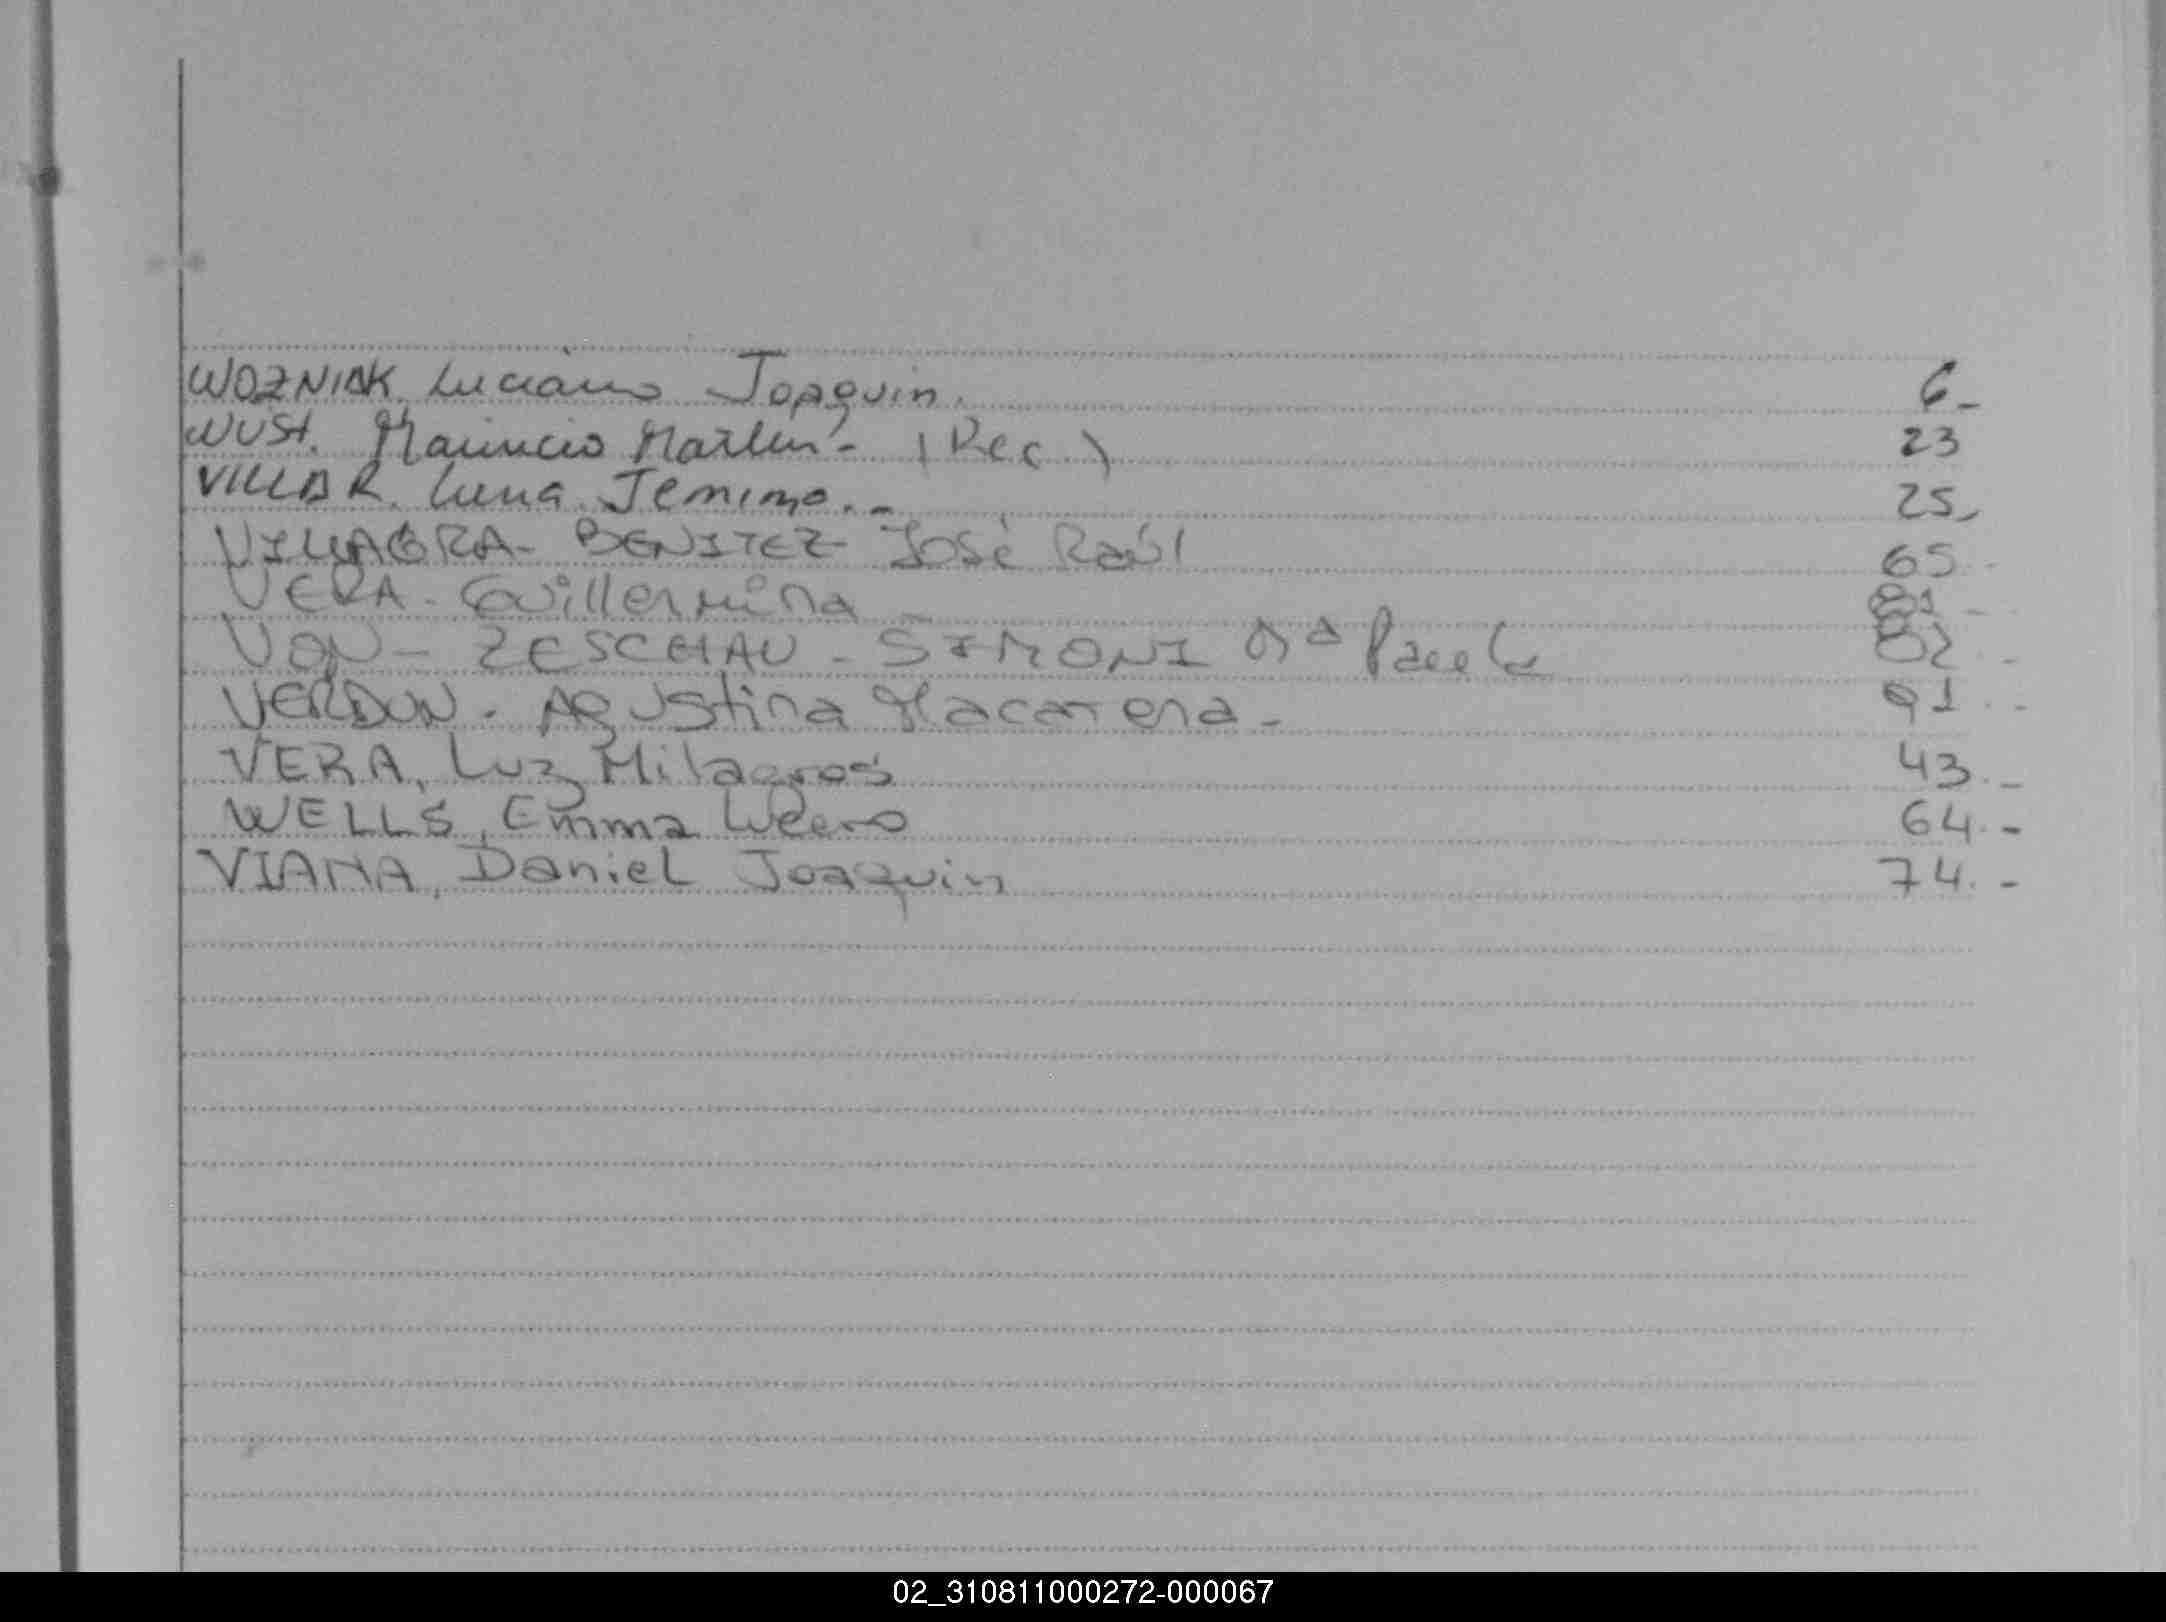 WOZNIAK. Luciano Joaquin. 6_
WUST. Mauricio Martin - (Rec.) 23
VILLAR. Luna Jemima._ 25_
VILLAGRA- BENITEZ- José Raúl 65.-
VERA- Guillermina_ 81-
VON- ZESCHAU - SIMONI Mª Paula 82-
VERDUN. Agustina Macarena- 91.-
VERA, Luz Milagros 43._
WELLS, Emma 64.-
VIANA, Daniel Joaquin 74.-
02_310811000272-000067